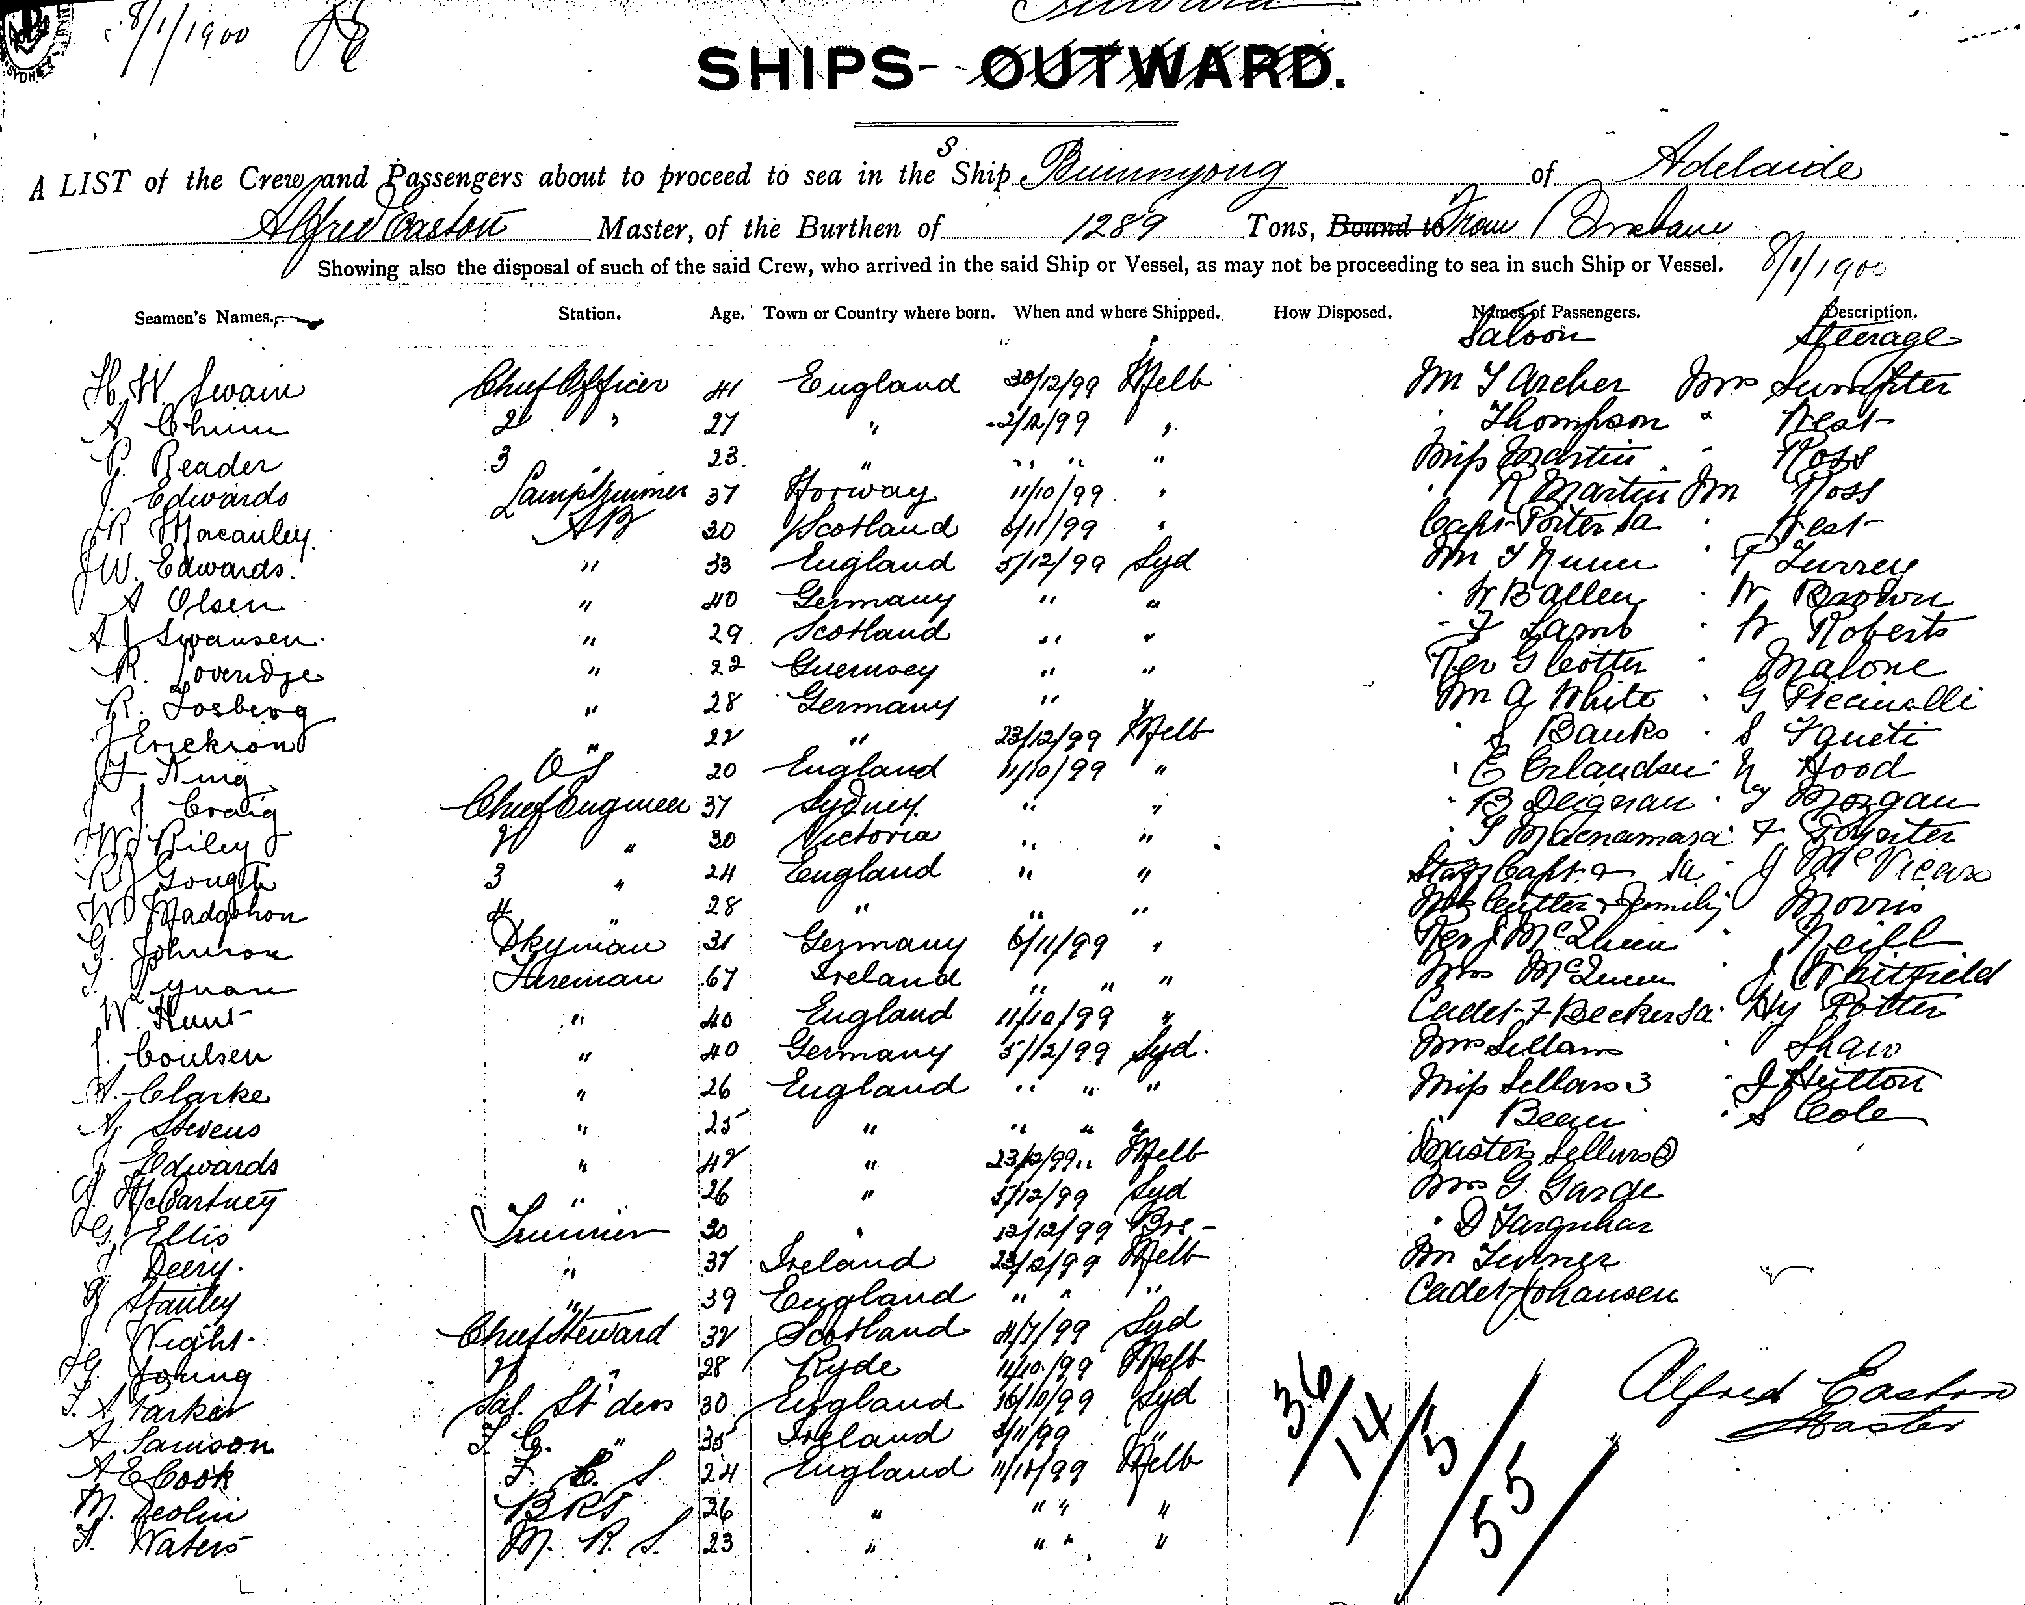 Inward
8/1/1900
SHIPS- OUTWARD.
A LIST of the Crew and Passengers about to proceed to sea in the S Ship Buninyong of Adelaide
Alfred Easton Master, of the Burthen of 1289 Tons, Bound to From Brisbane
Showing also the disposal of such of the said Crew, who arrived in the said Ship or Vessel, as may not be proceeding to sea in such Ship or Vessel. 8/1/1900
Seamen's Names. Station. Age. Town or Country where born. When and where Shipped. How Disposed. Names of Passengers. Description.
Saloon Steerage
H. W Swain Chief Officer 41 England 30/12/99 Melb Mr T Archer Mrs Sumpter
A 2 " 27 " 2/12/99 " " Thompson " West
P. Reader 3 23 " " " " Miss Martin " Ross
J. Edwards Lamptrimmer 37 Norway 11/10/99 " " R Martin Mr Ross
R Macauley AB 30 Scotland 6/11/99 " Capt Porter SA " West
J W. Edwards. " 33 England 5/12/99 Syd Mr T Nunn " T Turrey
A Olsen " 40 Germany " " " W Ballen " W Brown
A J Swansen " 29 Scotland " " " F Lamb " W Roberts
R. Loveridge " 22 Guernsey " " Rev G Cotter " Malone
R. Fosberg " 28 Germany " " Mr A White " G Piccinelli
J Erickson " 22 " 23/12/99 Melb " S Banks " S
F King OS 20 England 11/10/99 " " E Erlandsen " N Hood
J J Craig Chief Engineer 37 Sydney " " " B Deignan " Hy Morgan
W Riley 2 " 30 Victoria " " " T Macnamara " F Poynter
R J Gough 3 " 24 England " " Staff Capt & SA " J McVicars
W Madgshon 4 " 28 " " " Mrs Cutter & Family " Morris
G. Johnson Dkyman 31 Germany 6/11/99 " Rev J McQueen " Neill
T. Lynan Fireman 67 Ireland " " " Mrs McQueen " J Whitfield
W. Hunt " 40 England 11/10/99 " Cadet F Becker SA " Hy Potter
J. Coulsen " 40 Germany 5/12/99 Syd. Mrs Sellars " Shaw
A. Clarke " 26 England " " " Miss Sellars 3 " J Hutton
A Stevens " 25 " " " " " Been " S Cole
J Edwards " 42 " 23/12/99 " Melb Masters Sellars 3
J. McCartney " 26 " 5/12/99 Syd Mrs G. Garde
G. Ellis Trimmer 30 " 12/12/99 Bne " D Farquhar
J Deery. " 37 Ireland 23/12/99 Melb Mr Turner
G Stanley " 39 England " " " Cadet Johansen
J. Wight Chief Steward 32 Scotland 4/7/99 Syd
G. Young 2 " 28 Ryde 11/10/99 Melb
T. A Parker Sal. St'dess 30 England 16/10/99 Syd
A Samson F. C. " 35 Ireland 2/11/99 "
A E Cook F. C. S. 24 England 11/10/99 Melb
M. Deolin BRS 26 " " " "
H. Waters M. R. S. 23 " " " "
36/14/5/55
Alfred Easton
Master